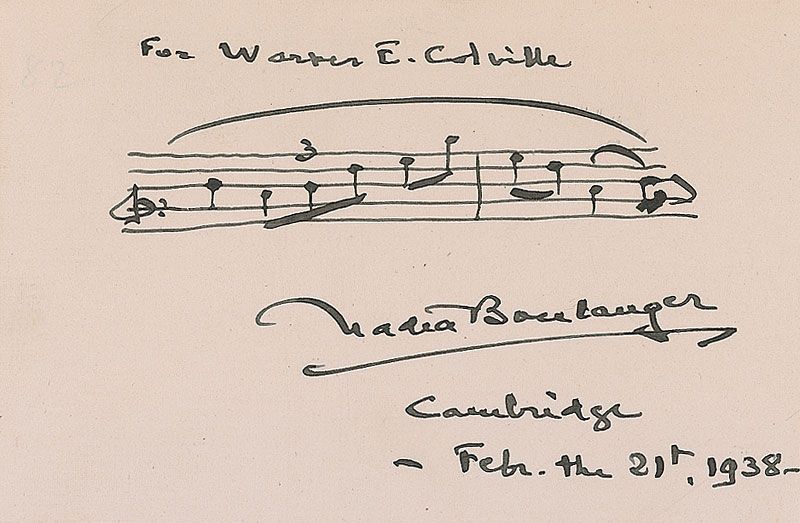 For Warner E. Colville
3
Nadia Boulanger
Cambridge
- Febr. the 21st, 1938-